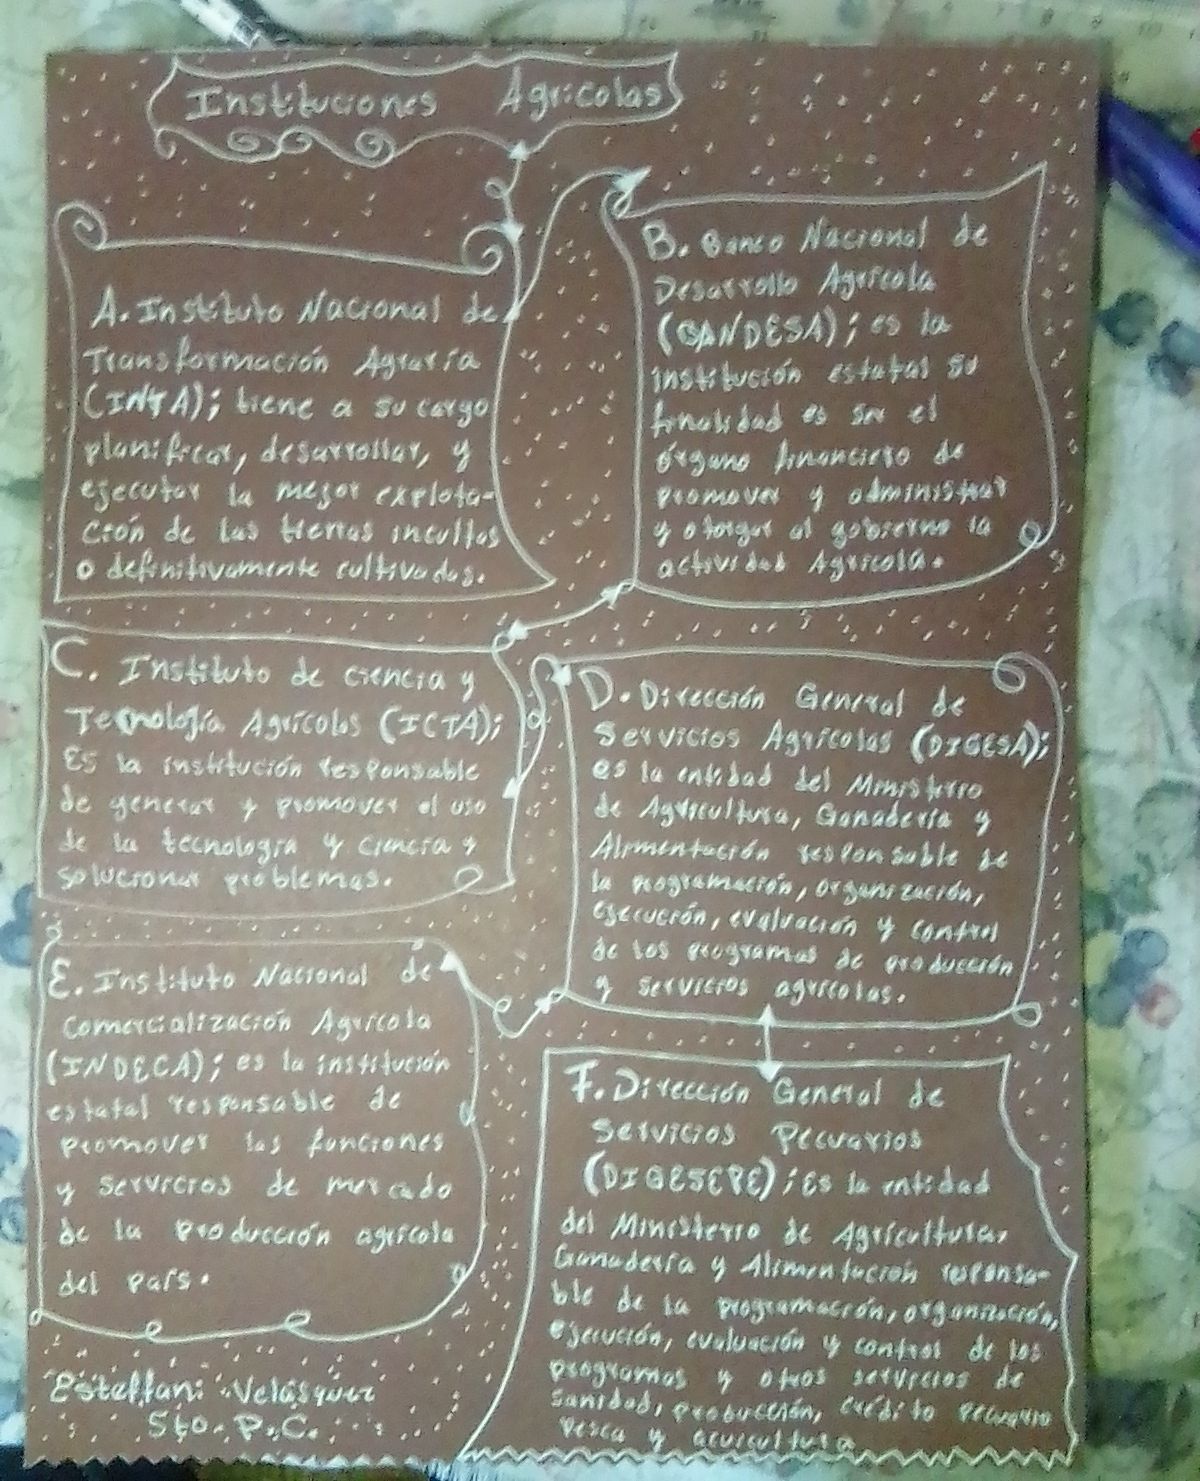 Instituciones Agrícolas
A. Instituto Nacional de
Transformación Agraria
(INTA); tiene a su cargo
planificar, desarrollar, y
ejecutar la mejor explota-
ción de las tierras incultas
o definitivamente cultivadas.
B. Banco Nacional de
Desarrollo Agrícola
(BANDESA); es la
institución estatal su
finalidad es ser el
órgano financiero de
promover y administrar
y otorgar al gobierno la
actividad Agrícola.
C. Instituto de ciencia y
Tecnología Agrícolas (ICTA);
Es la institución responsable
de generar y promover el uso
de la tecnología y ciencia y
solucionar problemas.
D. Dirección General de
Servicios Agrícolas (DIGESA);
es la entidad del Ministerio
de Agricultura, Ganadería y
Alimentación responsable de
la programación, organización,
ejecución, evaluación y control
de los programas de producción
y servicios agrícolas.
E. Instituto Nacional de
Comercialización Agrícola
(INDECA); es la institución
estatal responsable de
promover las funciones
y servicios de mercado
de la producción agrícola
del país.
F. Dirección General de
Servicios Pecuarios
(DIGESEPE); Es la entidad
del Ministerio de Agricultura,
Ganadería y Alimentación responsa-
ble de la programación, organización,
ejecución, evaluación y control de los
programas y otros servicios de
sanidad, producción, crédito pecuario
pesca y acuicultura
Esteffani Velásquez
5to. P.C.